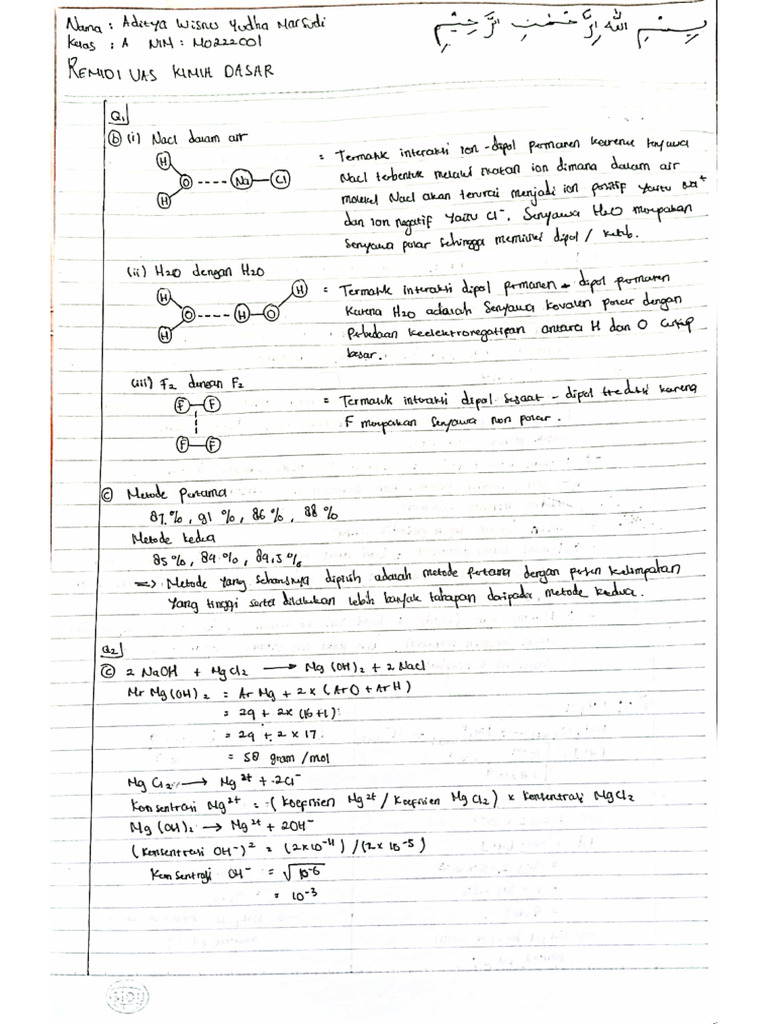 Nama : Aditya Wisnu Yudha Marsudi
Kelas : A NIM : M0222001
بِسْمِ اللهِ الرَّحْمٰنِ الرَّحِيْمِ
REMIDI UAS KIMIA DASAR
Q1
b (i) NaCl dalam air
H
O ---- Na — Cl
H
= Termasuk interaksi ion - dipol permanen karena senyawa
NaCl terbentuk melalui ikatan ion dimana dalam air
molekul NaCl akan terurai menjadi ion positif yaitu Na+
dan ion negatif yaitu Cl-. Senyawa H2O merupakan
Senyawa polar sehingga memiliki dipol /
(ii) H2O dengan H2O
H
H
O ---- H — O
H
= Termasuk interaksi dipol prmanen - dipol permanen
karena H2O adalah Senyawa kovalen polar dengan
Perbedaan keelektronegatipan antara H dan O cukup
besar.
(iii) F2 dengan F2
F — F
F — F
= Termasuk interaksi dipol sesaat - dipol karena
F merpakan Senyawa non polar.
c Metode pertama
87 %, 91 %, 86 %, 88 %
Metode kedua
85 %, 89 %, 89.5 %
=> Metode yang Seharusnya dipilih adalah metode pertama dengan persen kelimpatan
yang tinggi serta dilakukan lebih banyak tahapan daripada metode kedua.
Q2
c 2 NaOH + MgCl2 → Mg(OH)2 + 2 NaCl
Mr Mg(OH)2 = Ar Mg + 2 x (Ar O + Ar H)
= 24 + 2x (16+1)
= 24 + 2 x 17
= 58 gram /mol
Mg Cl2 → Mg2+ + 2Cl-
Konsentrasi Mg2+ = (Koefisien Mg2+ / Koefisien MgCl2) x Konsentrasi MgCl2
Mg (OH)2 → Mg2+ + 2OH-
(Konsentrasi OH-)2 = (2x10-11) / (2 x 10-5)
Konsentrasi OH- = √10-6
= 10-3